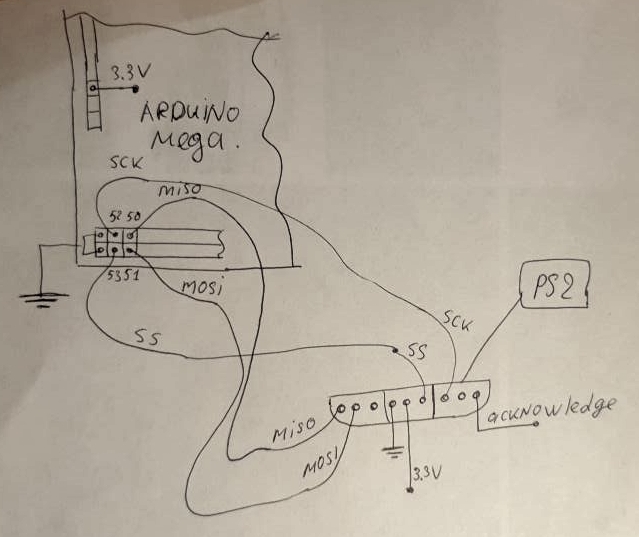 3.3V
ARDUINO
Mega.
SCK
MISO
52 50
53 51
MOSi
SS
SCK
SS
PS2
MiSO
MOSI
3.3V
acknowledge